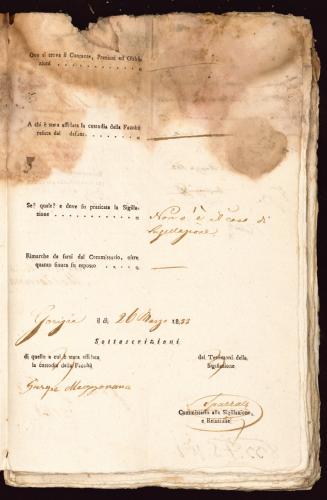 Ove si trova il Contante, Preziosi ed Obbli-
gazioni . . . . . . . . . .
A chi è stata affidata la custodia delle Facoltà
relitta dal defunto . . . . . .
Se? quale? e dove fu praticata la Sigilla-
zione . . . . . . . . . . .
Non v'è il caso di
Sigillazione
Rimarche da farsi dal Commissario, oltre
quanto finora fu esposto . . . .
il dì 26 Marzo 1833
Sottoscrizioni
di quello a cui è stata affidata
la custodia della Facoltà
dei Testimoni della
Sigillazione
Commissario alla Sigillazione,
e Relazione